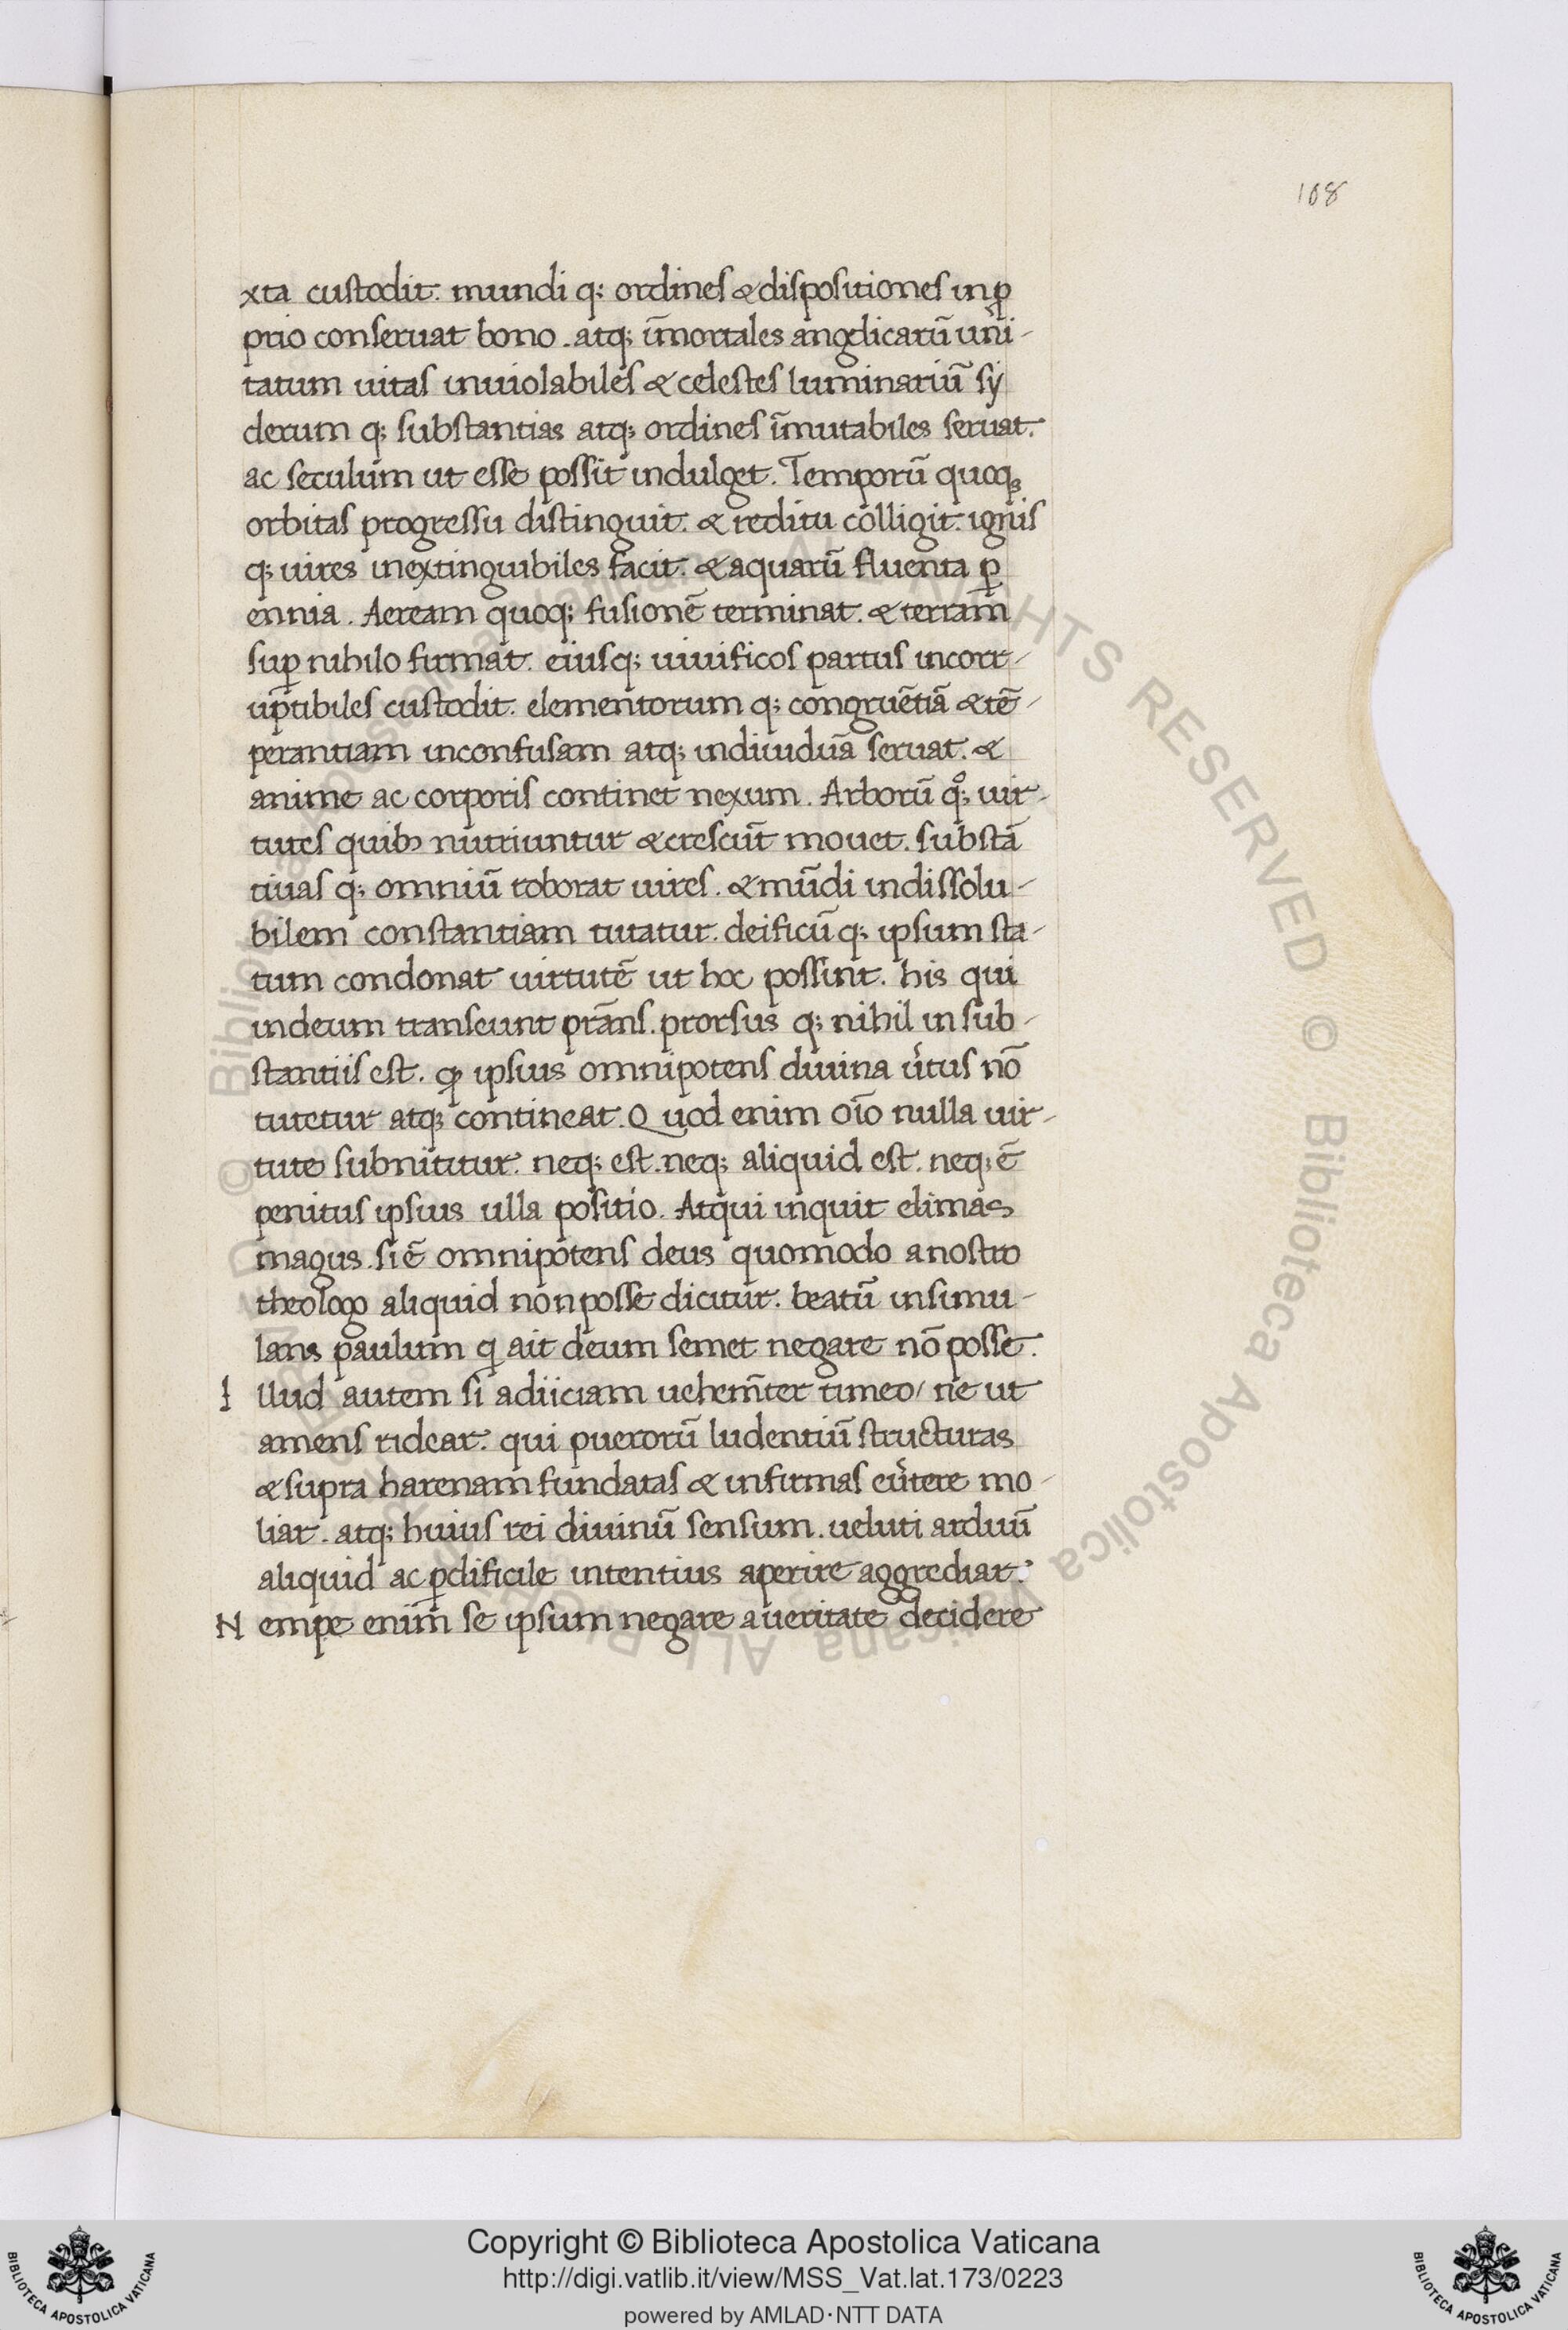 108
xta custodit. mundi q; ordines & dispositiones in ꝓ
prio conseruat bono. atq; īmortales angelicarū uni-
tatum uitas inuiolabiles & celestes luminariū sy
derum q; substantias atq; ordines īmutabiles seruat.
ac seculum ut esse possit indulget. Temporū quoq;
orbitas progressu distinguit. & reditu colligit. ignis
q; uires inextinguibiles facit. & aquarū fluenta ꝑ
ennia. Aeream quoq; fusionē terminat. & terram
suꝑ nihilo firmat. eiusq; uiuificos partus incorr-
uptibiles custodit. elementorum q; congruētiā & tē-
perantiam inconfusam atq; indiuiduā seruat. &
anime ac corporis continet nexum. Arborū qͦ; uir-
tutes quibꝫ nutriuntur & crescūt mouet. substā
tiuas q; omniū roborat uires. & mūdi indissolu-
bilem constantiam tutatur. deificū q; ipsum sta-
tum condonat uirtutē ut hoc possint. his qui
in deum transeunt prāns. prorsus q; nihil in sub-
stantiis est. ꝙ ipsius omnipotens diuina u̓tus nō
tutetur atq; contineat. Quod enim oīo nulla uir-
tute subnititur. neq; est. neq; aliquid est. neq; ē
penitus ipsius ulla positio. Atqui inquit elimas
magus. si ē omnipotens deus quomodo a nostro
theologo aliquid non posse dicitur. beatū insimu-
lans paulum q ait deum semet negare nō posse.
Illud autem si adiiciam uehem̄ter timeo/ ne ut
amens ridear. qui puerorū ludentiū structuras
& supra harenam fundatas & infirmas eu̓tere mo-
liar. atq; huius rei diuinū sensum. ueluti arduū
aliquid ac ꝑdificile intentius aperire aggrediar.
Nempe enim se ipsum negare a ueritate decidere
© Biblioteca Apostolica Vaticana ALL RIGHTS RESERVED
Copyright © Biblioteca Apostolica Vaticana
http://digi.vatlib.it/view/MSS_Vat.lat.173/0223
powered by AMLAD·NTT DATA
BIBLIOTECA APOSTOLICA VATICANA
BIBLIOTECA APOSTOLICA VATICANA